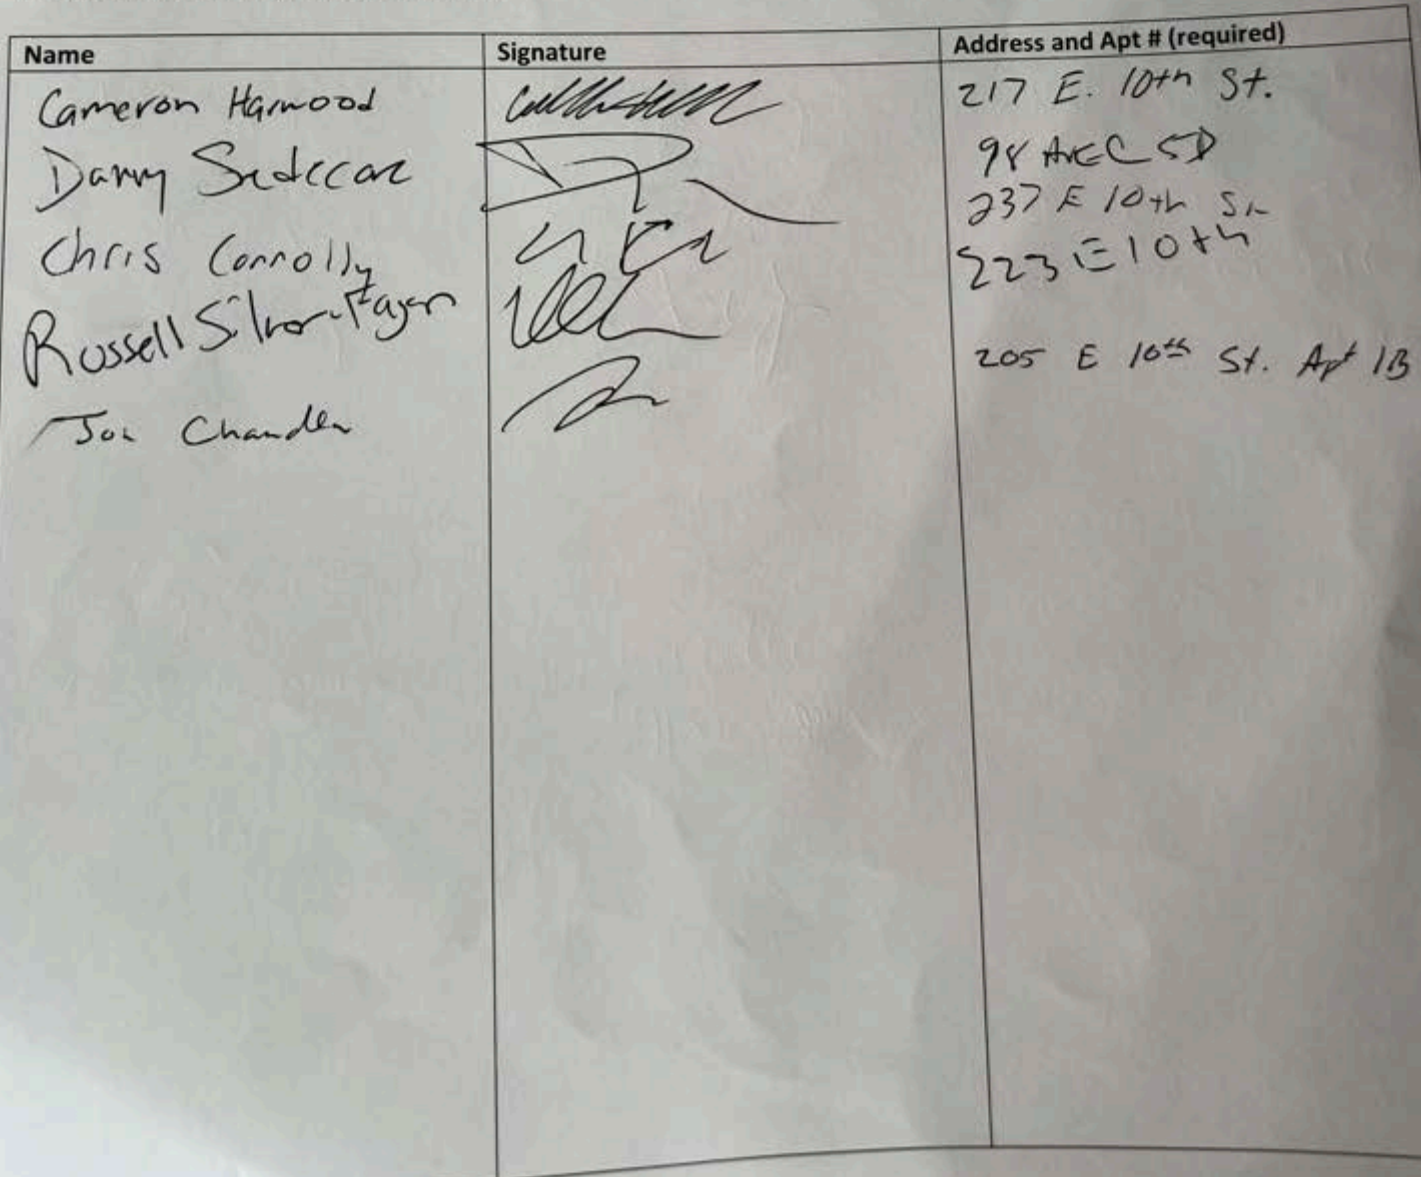 Name Signature Address and Apt # (required)
Cameron Harwood 217 E. 10th St.
Danny 98 Ave C 5D
Chris Connolly 237 E 10th
Russell Silver-Fagan 223 E 10th
Jon Chandler 205 E 10th St. Apt 1B